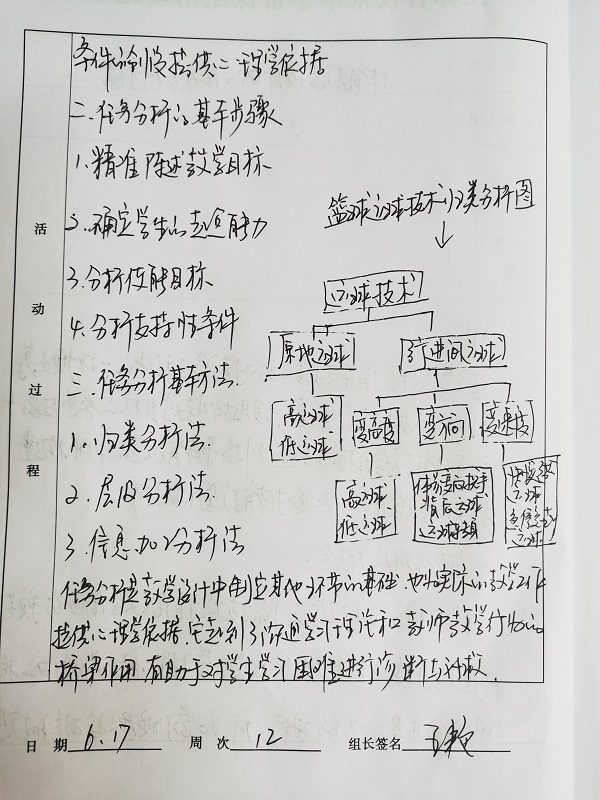 条件,创设提供心理学依据
二.任务分析的基本步骤
1.精准陈述教学目标
2.确定学生的起点能力
3.分析使能目标
4.分析支持性条件
三.任务分析基本方法.
1.归类分析法.
2.层级分析法.
3.信息加工分析法
篮球运球技术归类分析图
运球技术
原地运球
行进间运球
高运球
低运球
变高度
变方向
变速度
高运球
低运球
体前变向换手
背后运球
运球转身
快慢
运球
急停急起
运球
任务分析是教学设计中制定其他环节的基础.也为实际的教学工作
提供心理学依据.它起到了沟通学习理论和教师教学行为的
桥梁作用.有助于对学生学习困难进行诊断与补救.
活动过程
日 期 6.17 周 次 12 组长签名